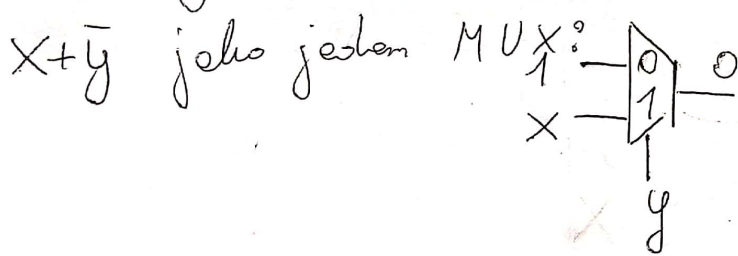 x+ȳ jako jeden MUX?
1 0 0
x 1
y